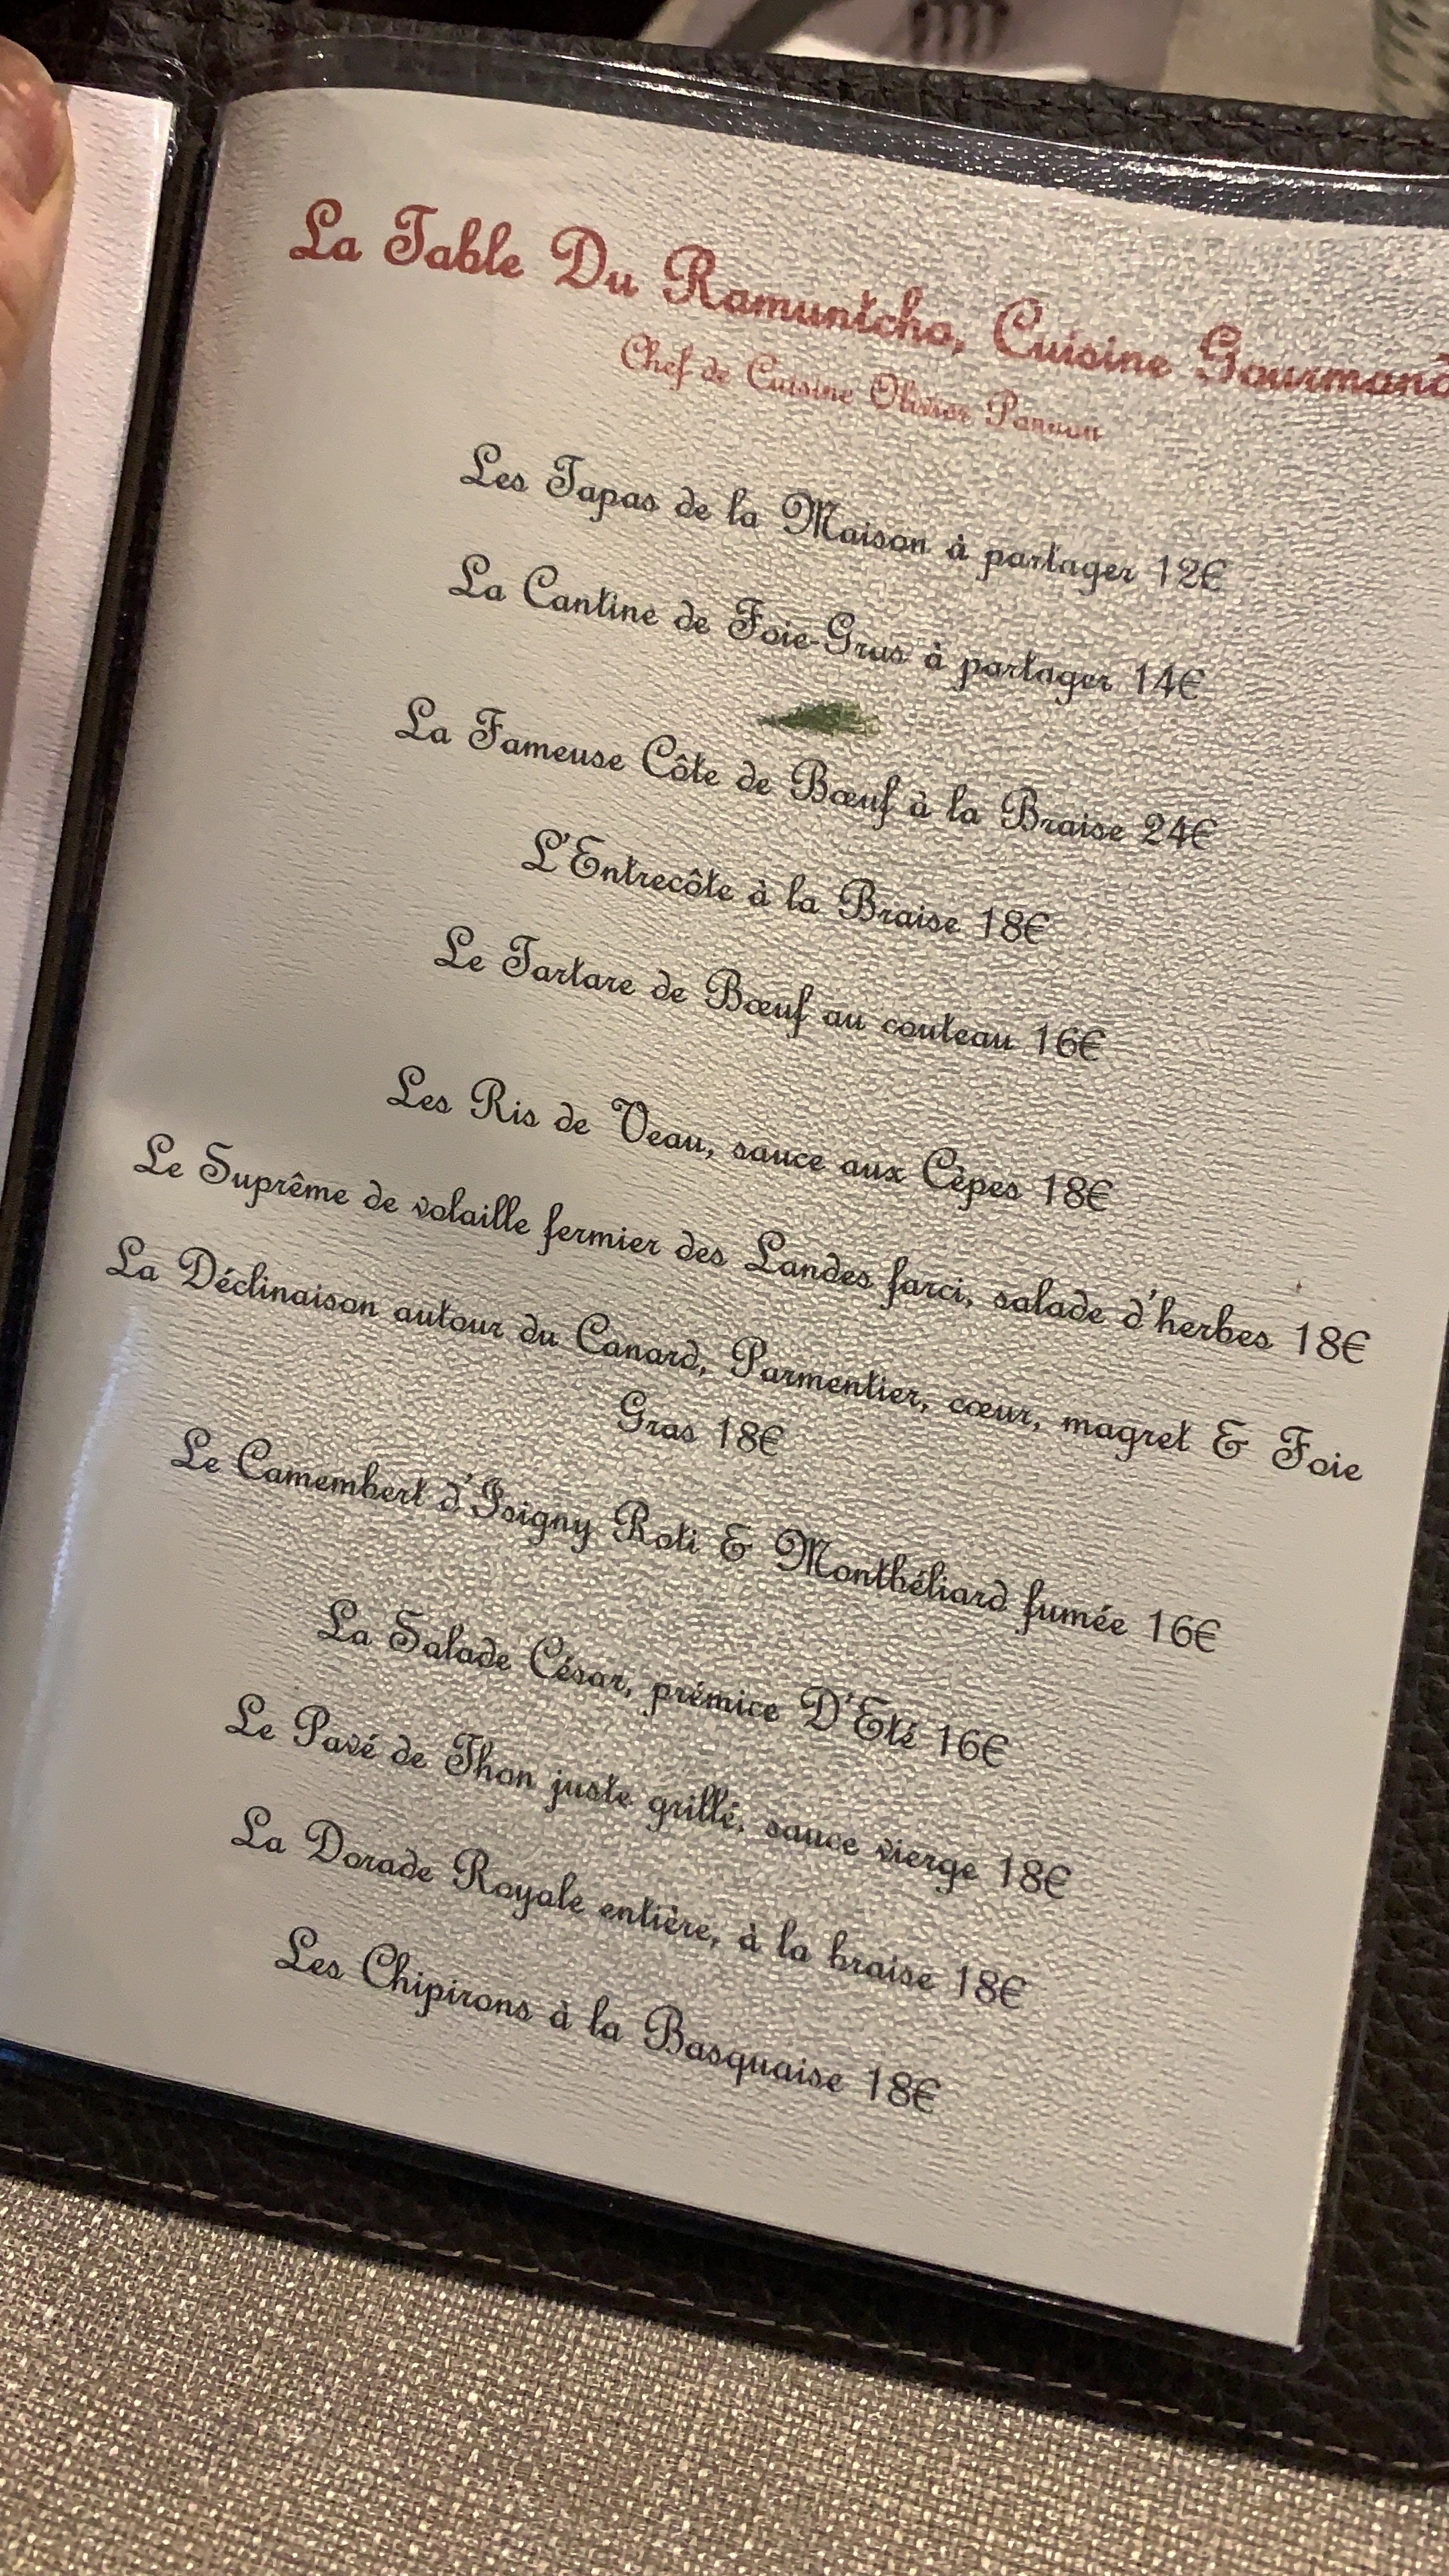 La Table Du Ramuntcho, Cuisine Gourmand
Chef de Cuisine Olivier
Les Tapas de la Maison à partager 12€
La Cantine de Foie-Gras à partager 14€
La Fameuse Côte de Bœuf à la Braise 24€
L'Entrecôte à la Braise 18€
Le Tartare de Bœuf au couteau 16€
Les Ris de Veau, sauce aux Cèpes 18€
Le Suprême de volaille fermier des Landes farci, salade d'herbes 18€
La Déclinaison autour du Canard, Parmentier, cœur, magret & Foie
Gras 18€
Le Camembert d'Isigny Roti & Montbéliard fumée 16€
La Salade César, prémice D'Eté 16€
Le Pavé de Thon juste grillé, sauce vierge 18€
La Dorade Royale entière, à la braise 18€
Les Chipirons à la Basquaise 18€